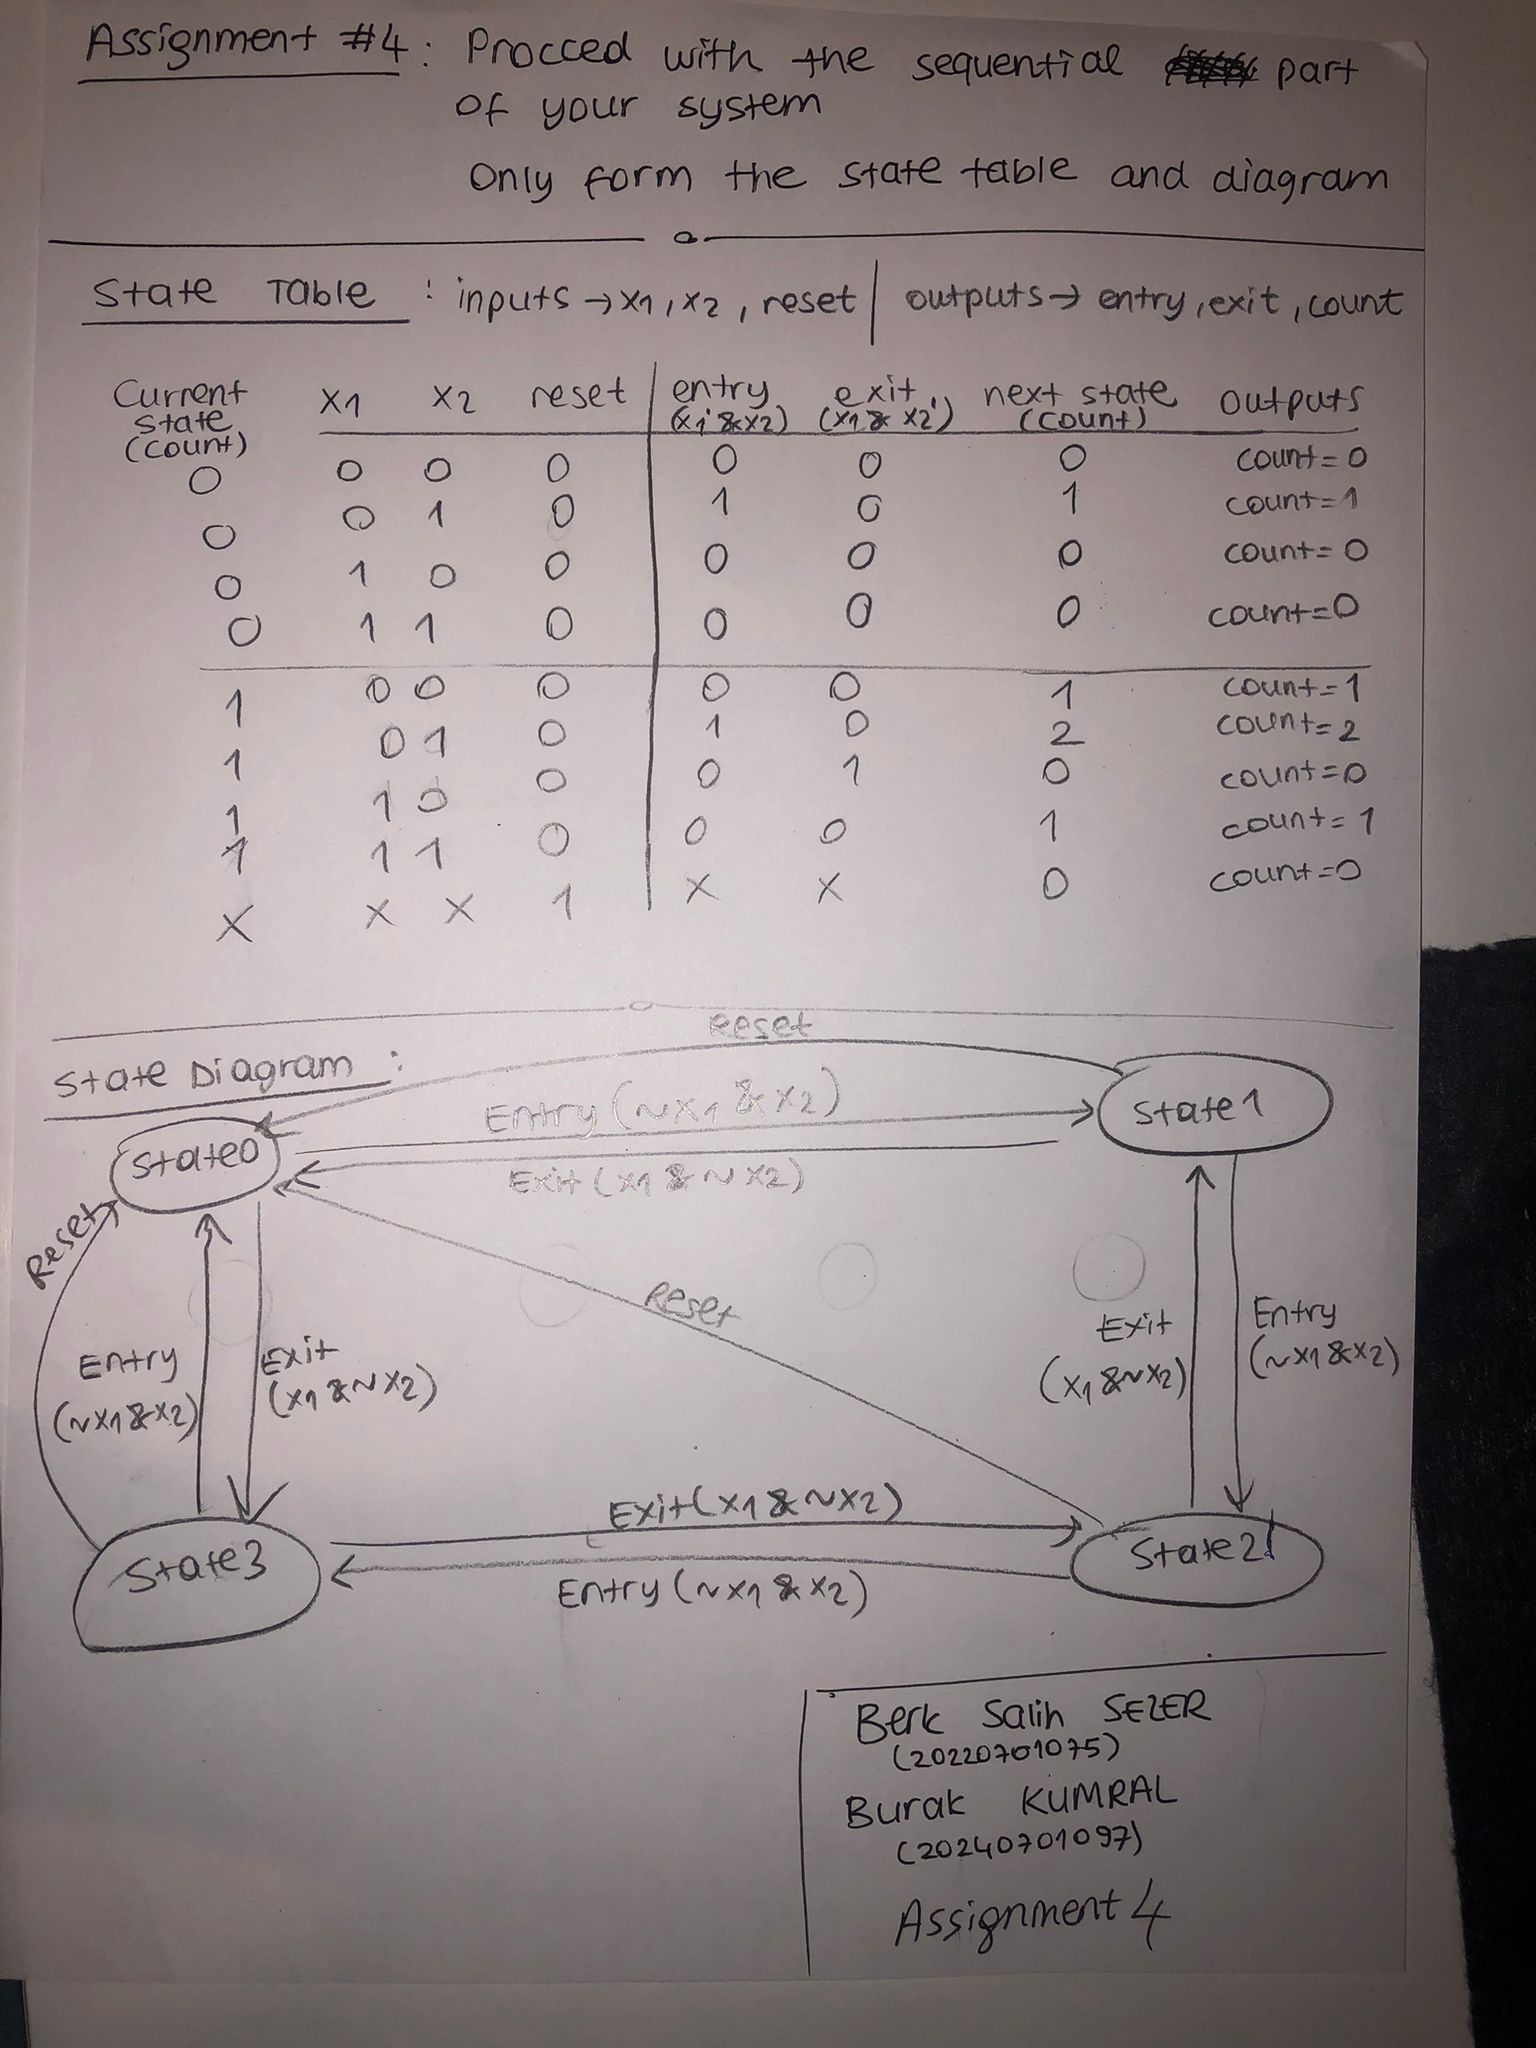 Assignment #4: Procced with the sequential part
of your system
Only form the state table and diagram
State Table : inputs → x1, x2, reset | outputs → entry, exit, count
Current state (count) x1 x2 reset entry (x1'&x2) exit (x1 & x2') next state (count) outputs
0 0 0 0 0 0 0 count=0
0 0 1 0 1 0 1 count=1
0 1 0 0 0 0 0 count=0
0 1 1 0 0 0 0 count=0
1 0 0 0 0 0 1 count=1
1 0 1 0 1 0 2 count=2
1 1 0 0 0 1 0 count=0
1 1 1 0 0 0 1 count=1
X X X 1 X X 0 count=0
State Diagram :
Reset
Entry (~x1 & x2)
State0
State1
Exit (x1 & ~x2)
Reset
Reset
Entry
(~x1&x2)
Exit
(x1&~x2)
Exit
(x1&~x2)
Entry
(~x1&x2)
Exit (x1 & ~x2)
State3
State2
Entry (~x1 & x2)
Berk Salih SEZER
(20220701075)
Burak KUMRAL
(20240701097)
Assignment 4